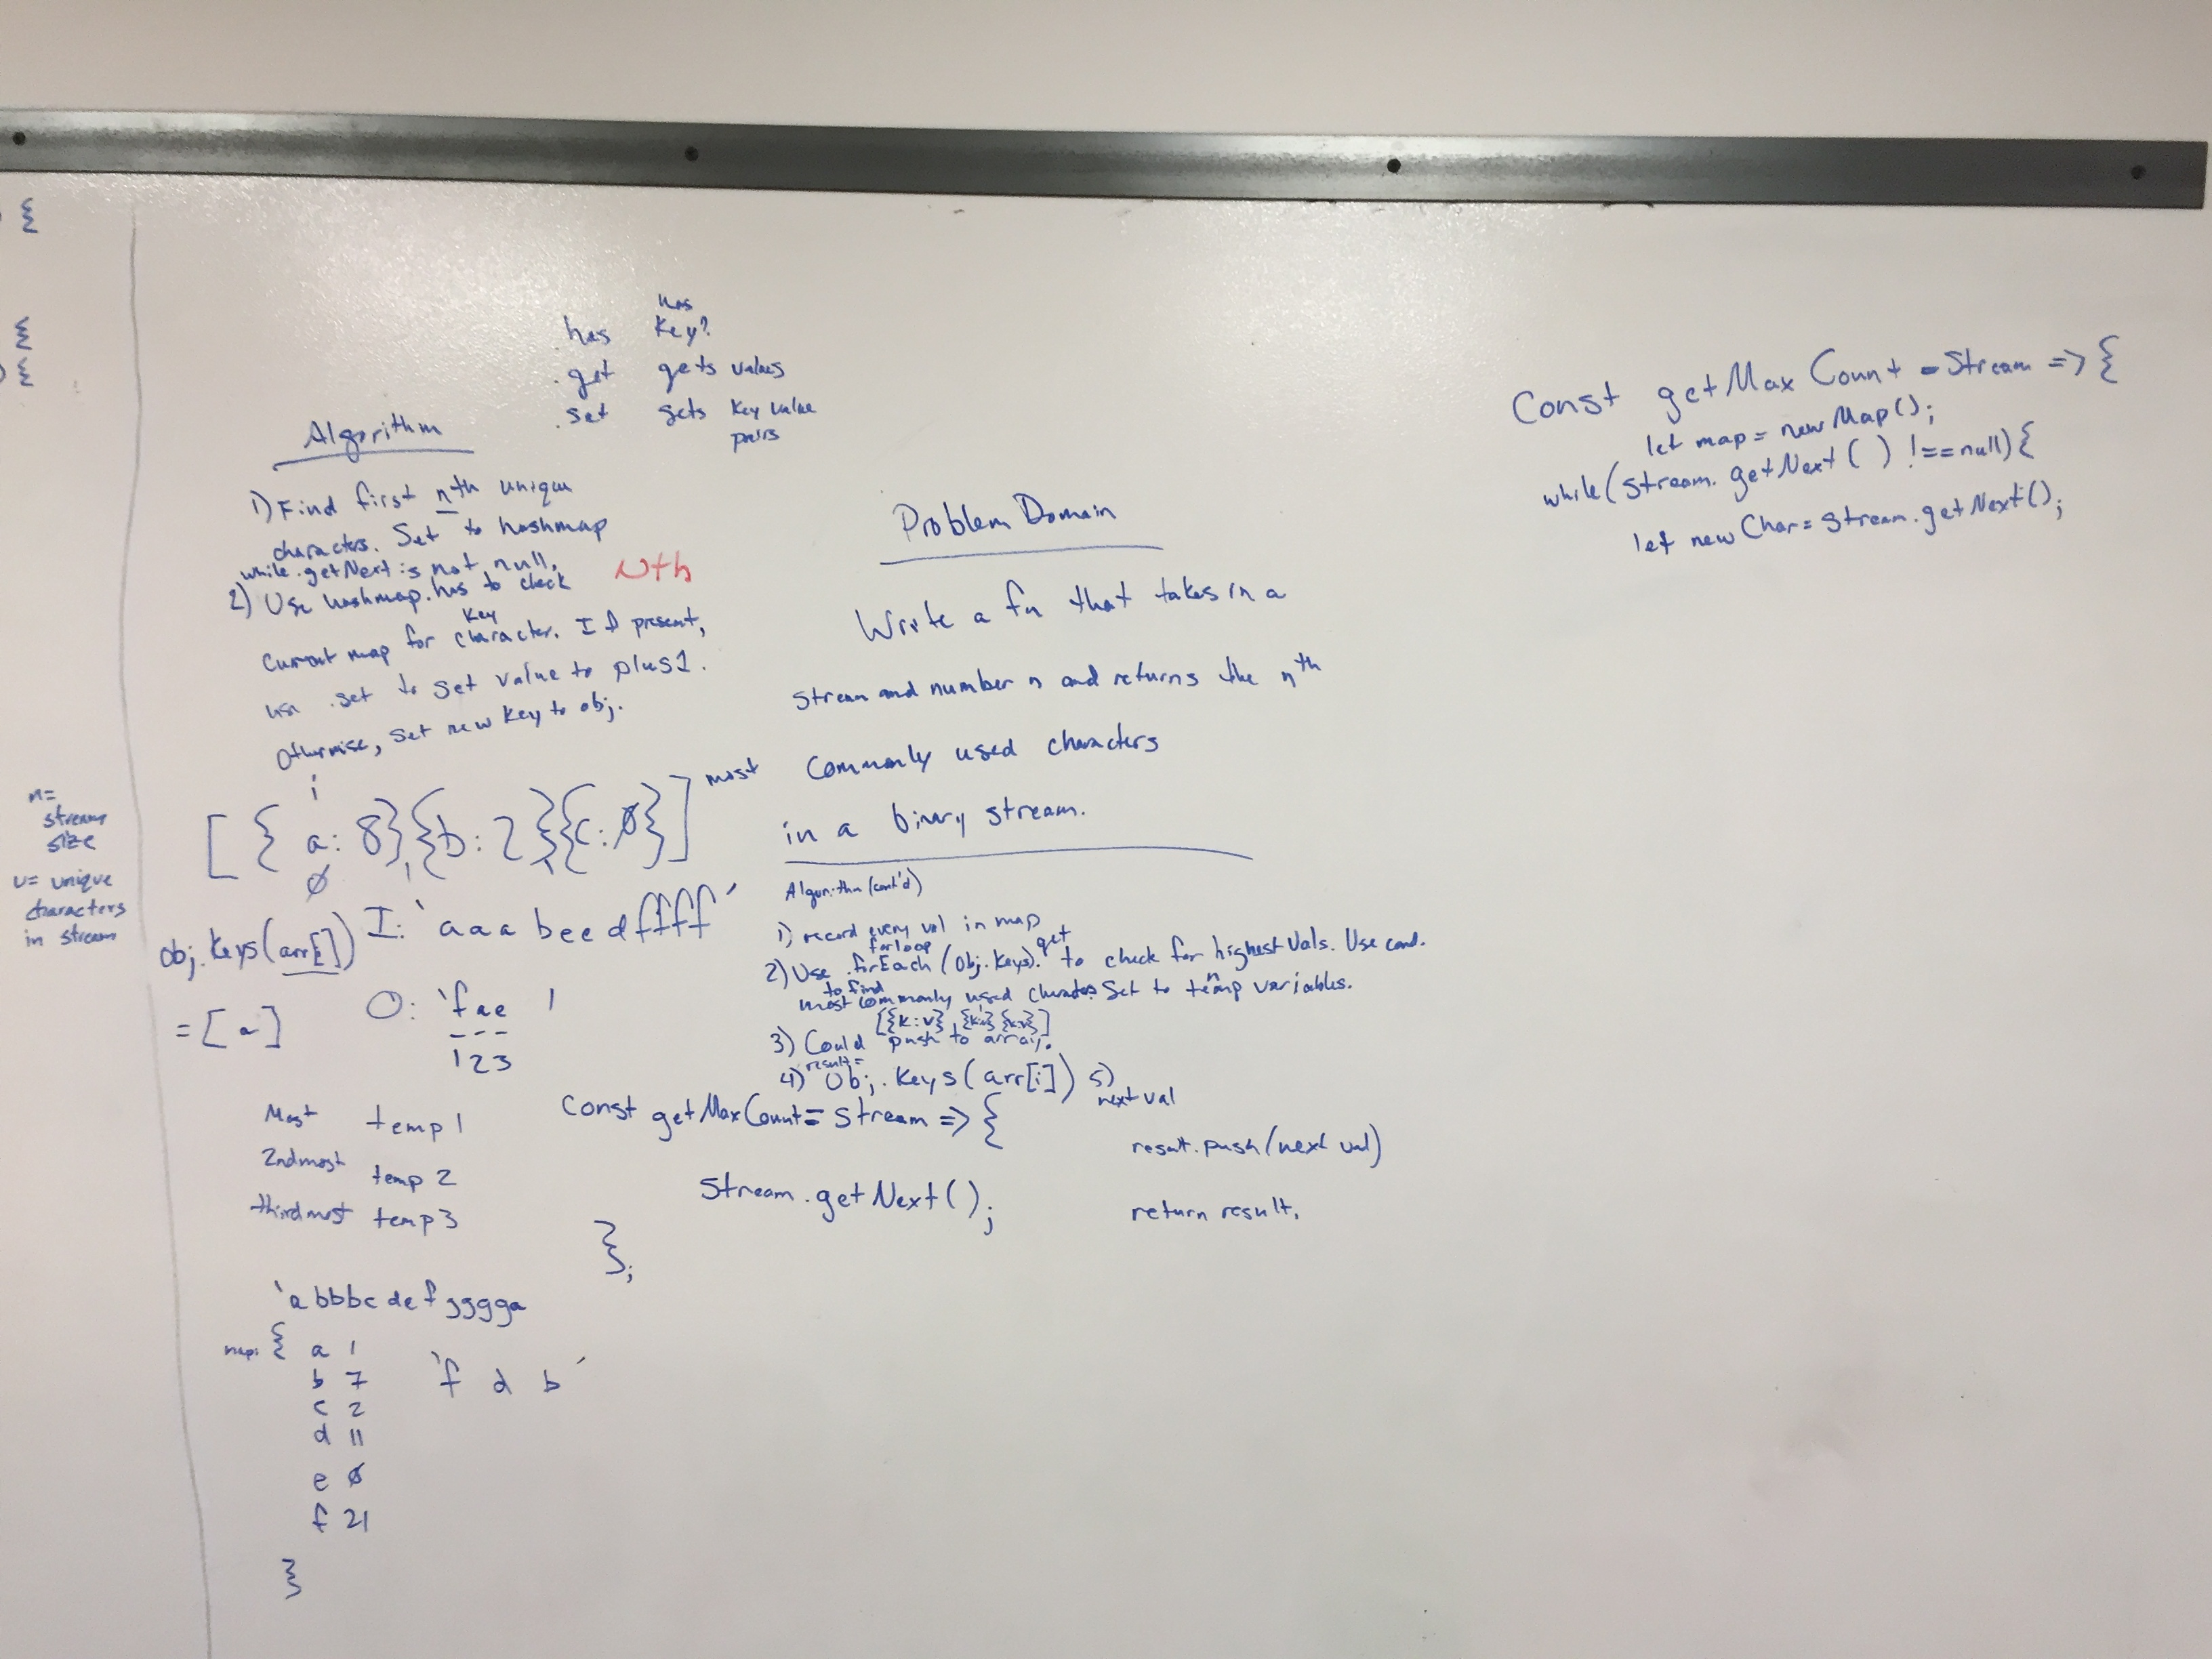 {
{
) {
m=
stream
size
u= unique
characters
in stream
has
.has key?
.get gets values
.set sets key value
pairs
Algorithm
1) Find first nth unique
characters. Set to hashmap
while .getNext is not null.
2) Use hashmap.has to check
key
current map for character. If present,
use .set to set value to plus 1.
Otherwise, set new key to obj.
Nth
i
[{ a: 8},{b: 2},{c: 0}]
0 1
obj.keys(arr[])
= [a]
I: 'aaa bee dffff'
O: 'fae '
1 2 3
Most temp 1
2nd most temp 2
third most temp 3
'a bbbc de f ggggga
map: { a 1
b 7
c 2
d 11
e 0
f 21
}
'f d b'
Problem Domain
Write a fn that takes in a
stream and number n and returns the nth
most commonly used characters
in a binary stream.
Algorithm (cont'd)
1) record every val in map
for loop get
2) Use .forEach (Obj.keys). to check for highest vals. Use cond.
to find n
most commonly used characters. Set to temp variables.
[{k:v}, {k:v} {k:v}]
3) Could push to array.
result =
4) Obj.keys(arr[i]) 5)
next val
result.push(next val)
return result.
Const getMaxCount = stream => {
Stream.getNext();
};
Const getMaxCount = Stream => {
let map = new Map();
while(stream.getNext() !== null){
let newChar = stream.getNext();